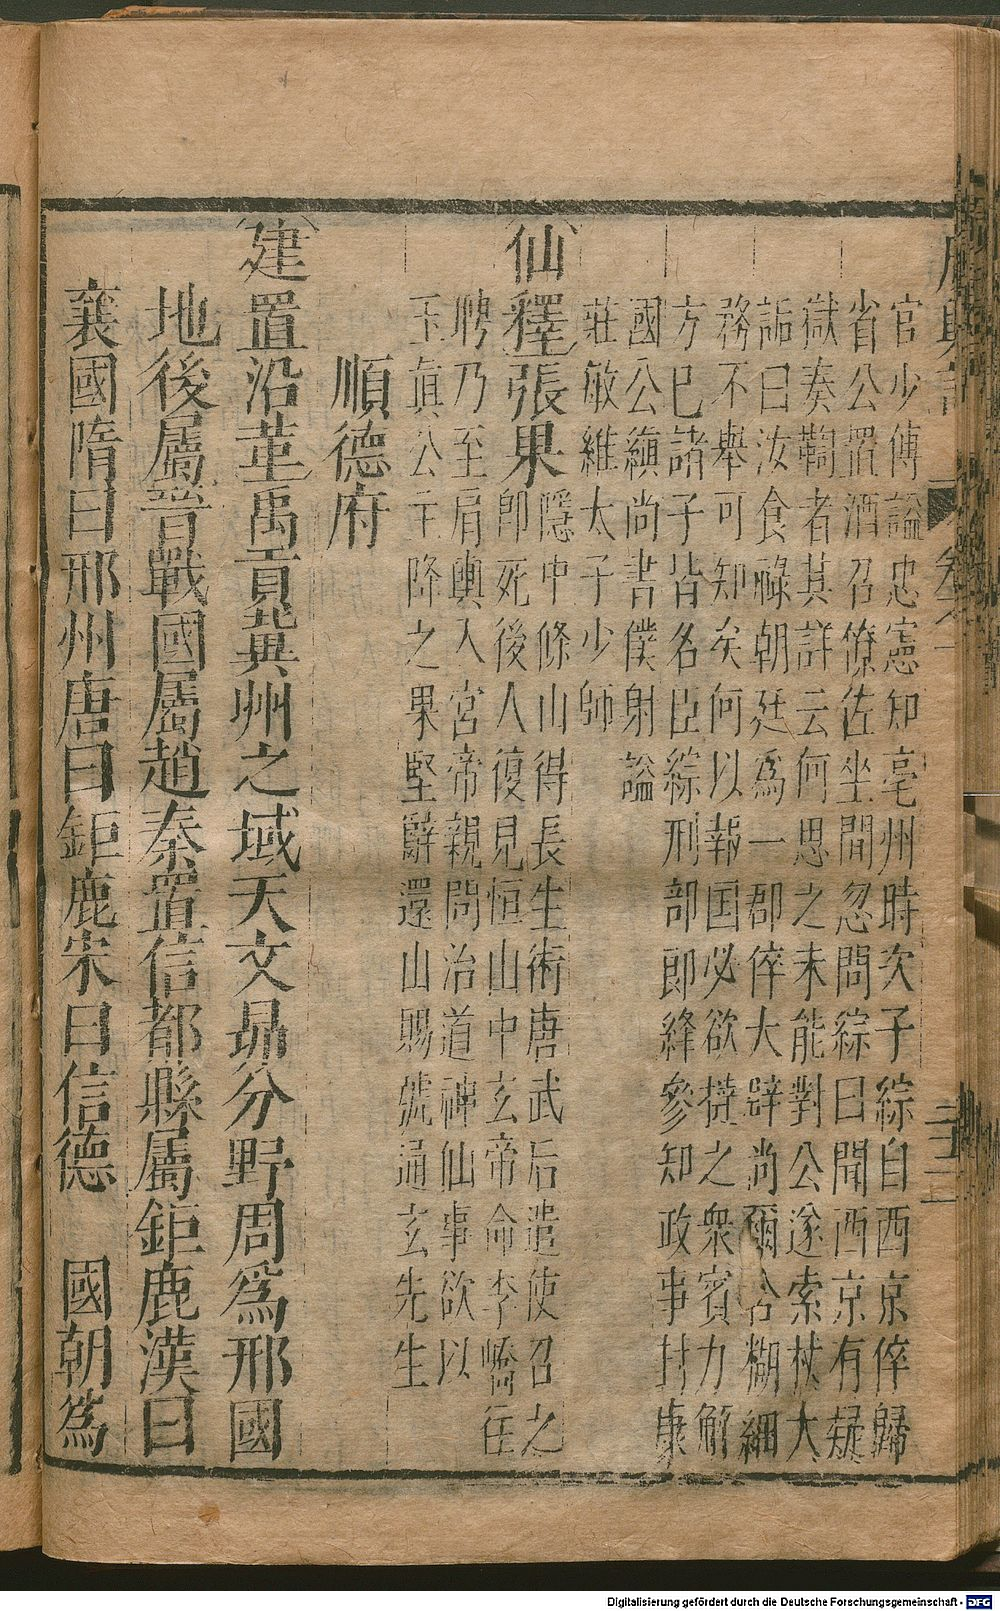 官少傅謚忠憲知亳州時次子綜自西京倅歸
省公置酒召僚佐坐間忽問綜曰聞西京有疑
獄奏讞者其詳云何思之未能對公遂索杖大
詬曰汝食祿朝廷為一郡倅大辟尚爾含糊細
務不舉可知矣何以報国必欲撻之衆賓力解
方已諸子皆名臣綜刑部郎絳參知政事封康
國公縝尚書僕射謚
莊敏維太子少師
仙釋張果
隱中條山得長生術唐武后遣使召之
卽死後人復見恒山中玄帝命李嶠往
聘乃至肩輿入宮帝親問治道神仙事欲以
玉眞公主降之果堅辭還山賜號通玄先生
順德府
建置沿革禹貢兾州之域天文昴分野周為邢國
地後屬晉戰國屬趙秦置信都縣屬鉅鹿漢曰
襄國隋曰邢州唐曰鉅鹿宋曰信德 國朝為
Digitalisierung gefördert durch die Deutsche Forschungsgemeinschaft - DFG